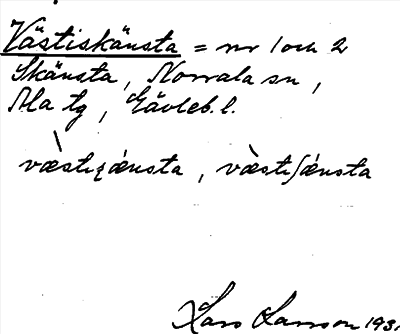 Västiskänsta = nr 1 och 2
Skänsta, Norrala sn,
Ala tg, Gävleb. l.
væ̀stiʂǽnsta, væ̀stiʃǽnsta
Lars Larsson 193